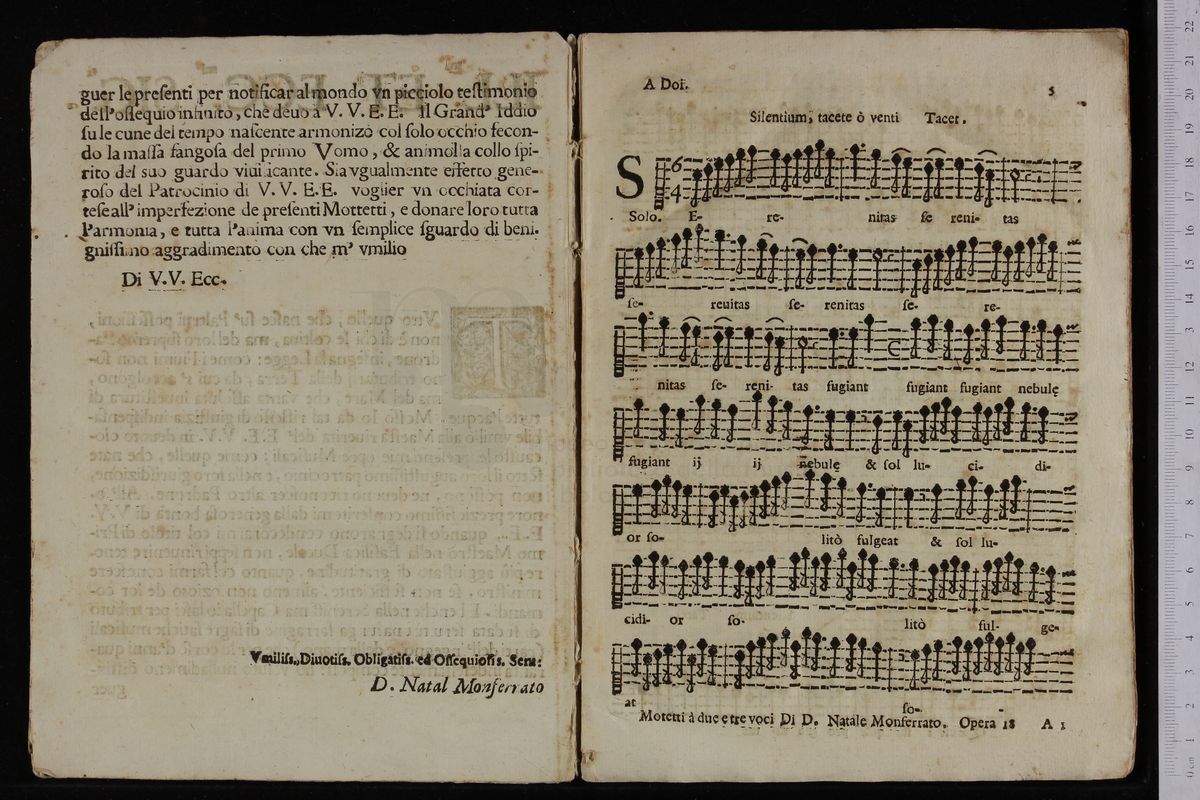 guer le preſenti per notificar al mondo vn picciolo teſtimonio
dell'oſſequio infinito, che deuo à V. V. E. E. Il Grand' Iddio
ſu le cune del tempo naſcente armonizò col ſolo occhio fecon-
do la maſſa fangoſa del primo Vomo, & animolla collo ſpi-
rito del suo guardo viuificante. Sia vgualmente effetto gene-
roſo del Patrocinio di V. V. E. E. voglier vn occhiata cor-
teſe all' imperfezione de preſenti Mottetti, e donare loro tutta
l'armonia, e tutta l'anima con vn ſemplice ſguardo di beni-
gniſſimo aggradimento con che m' vmilio
Di V. V. Ecc.
Vmiliſs., Diuotiſs. Obligatiſs. ed Oſſequioſiſs. Seru:
D. Natal Monferrato
A Doi.
5
Silentium, tacete ò venti Tacet.
S
6
4
Solo. E- re- nitas ſe reni- tas
ſe- reuitas ſe- renitas ſe- re-
nitas ſe- reni- tas fugiant fugiant fugiant nebulę
C
fugiant ij ij nebulę & ſol lu- ci- di-
or ſo- litò fulgeat & ſol lu-
cidi- or ſo- litò ful- ge-
at ſo-
Motetti à due e tre voci Di D. Natale Monferrato. Opera 18 A 3